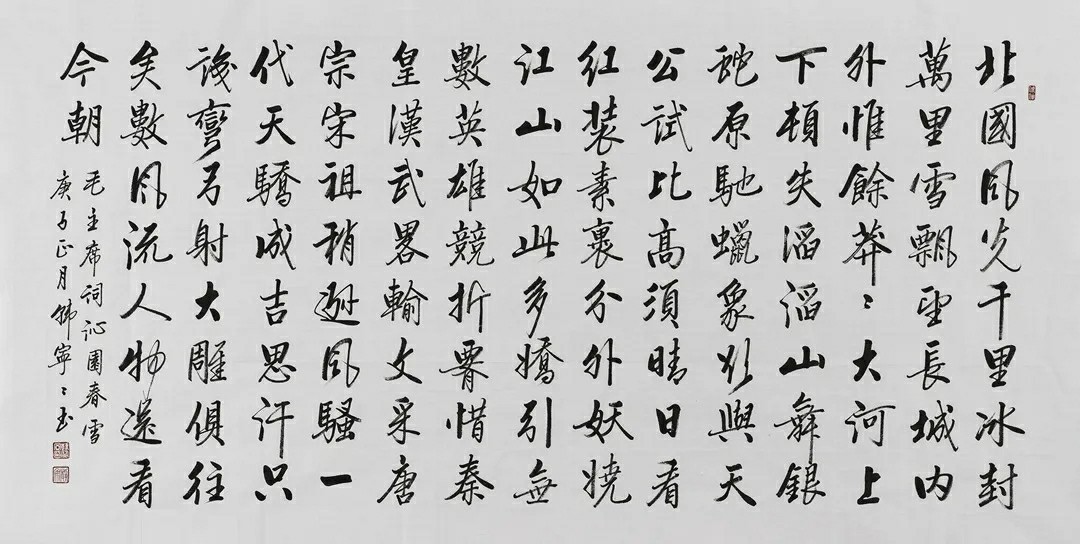 北國風光千里冰封
萬里雪飄望長城內
外惟餘莽〻大河上
下頓失滔滔山舞銀
蛇原馳蠟象欲與天
公試比高須晴日看
紅裝素裹分外妖嬈
江山如此多嬌引無
數英雄競折腰惜秦
皇漢武畧輸文采唐
宗宋祖稍遜風騷一
代天驕成吉思汗只
識彎弓射大雕俱往
矣數風流人物還看
今朝
毛主席詞沁園春雪
庚子正月寧〻書